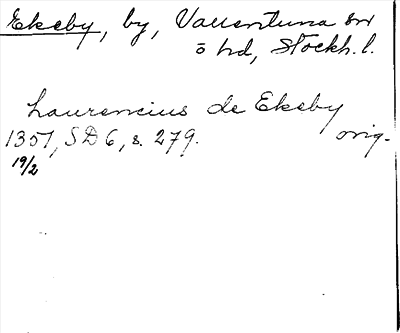 Ekeby, by, Vallentuna sn
ö hd, Stockh. l.
Laurencius de Ekeby
1351, SD 6, s. 279. orig.
19/2